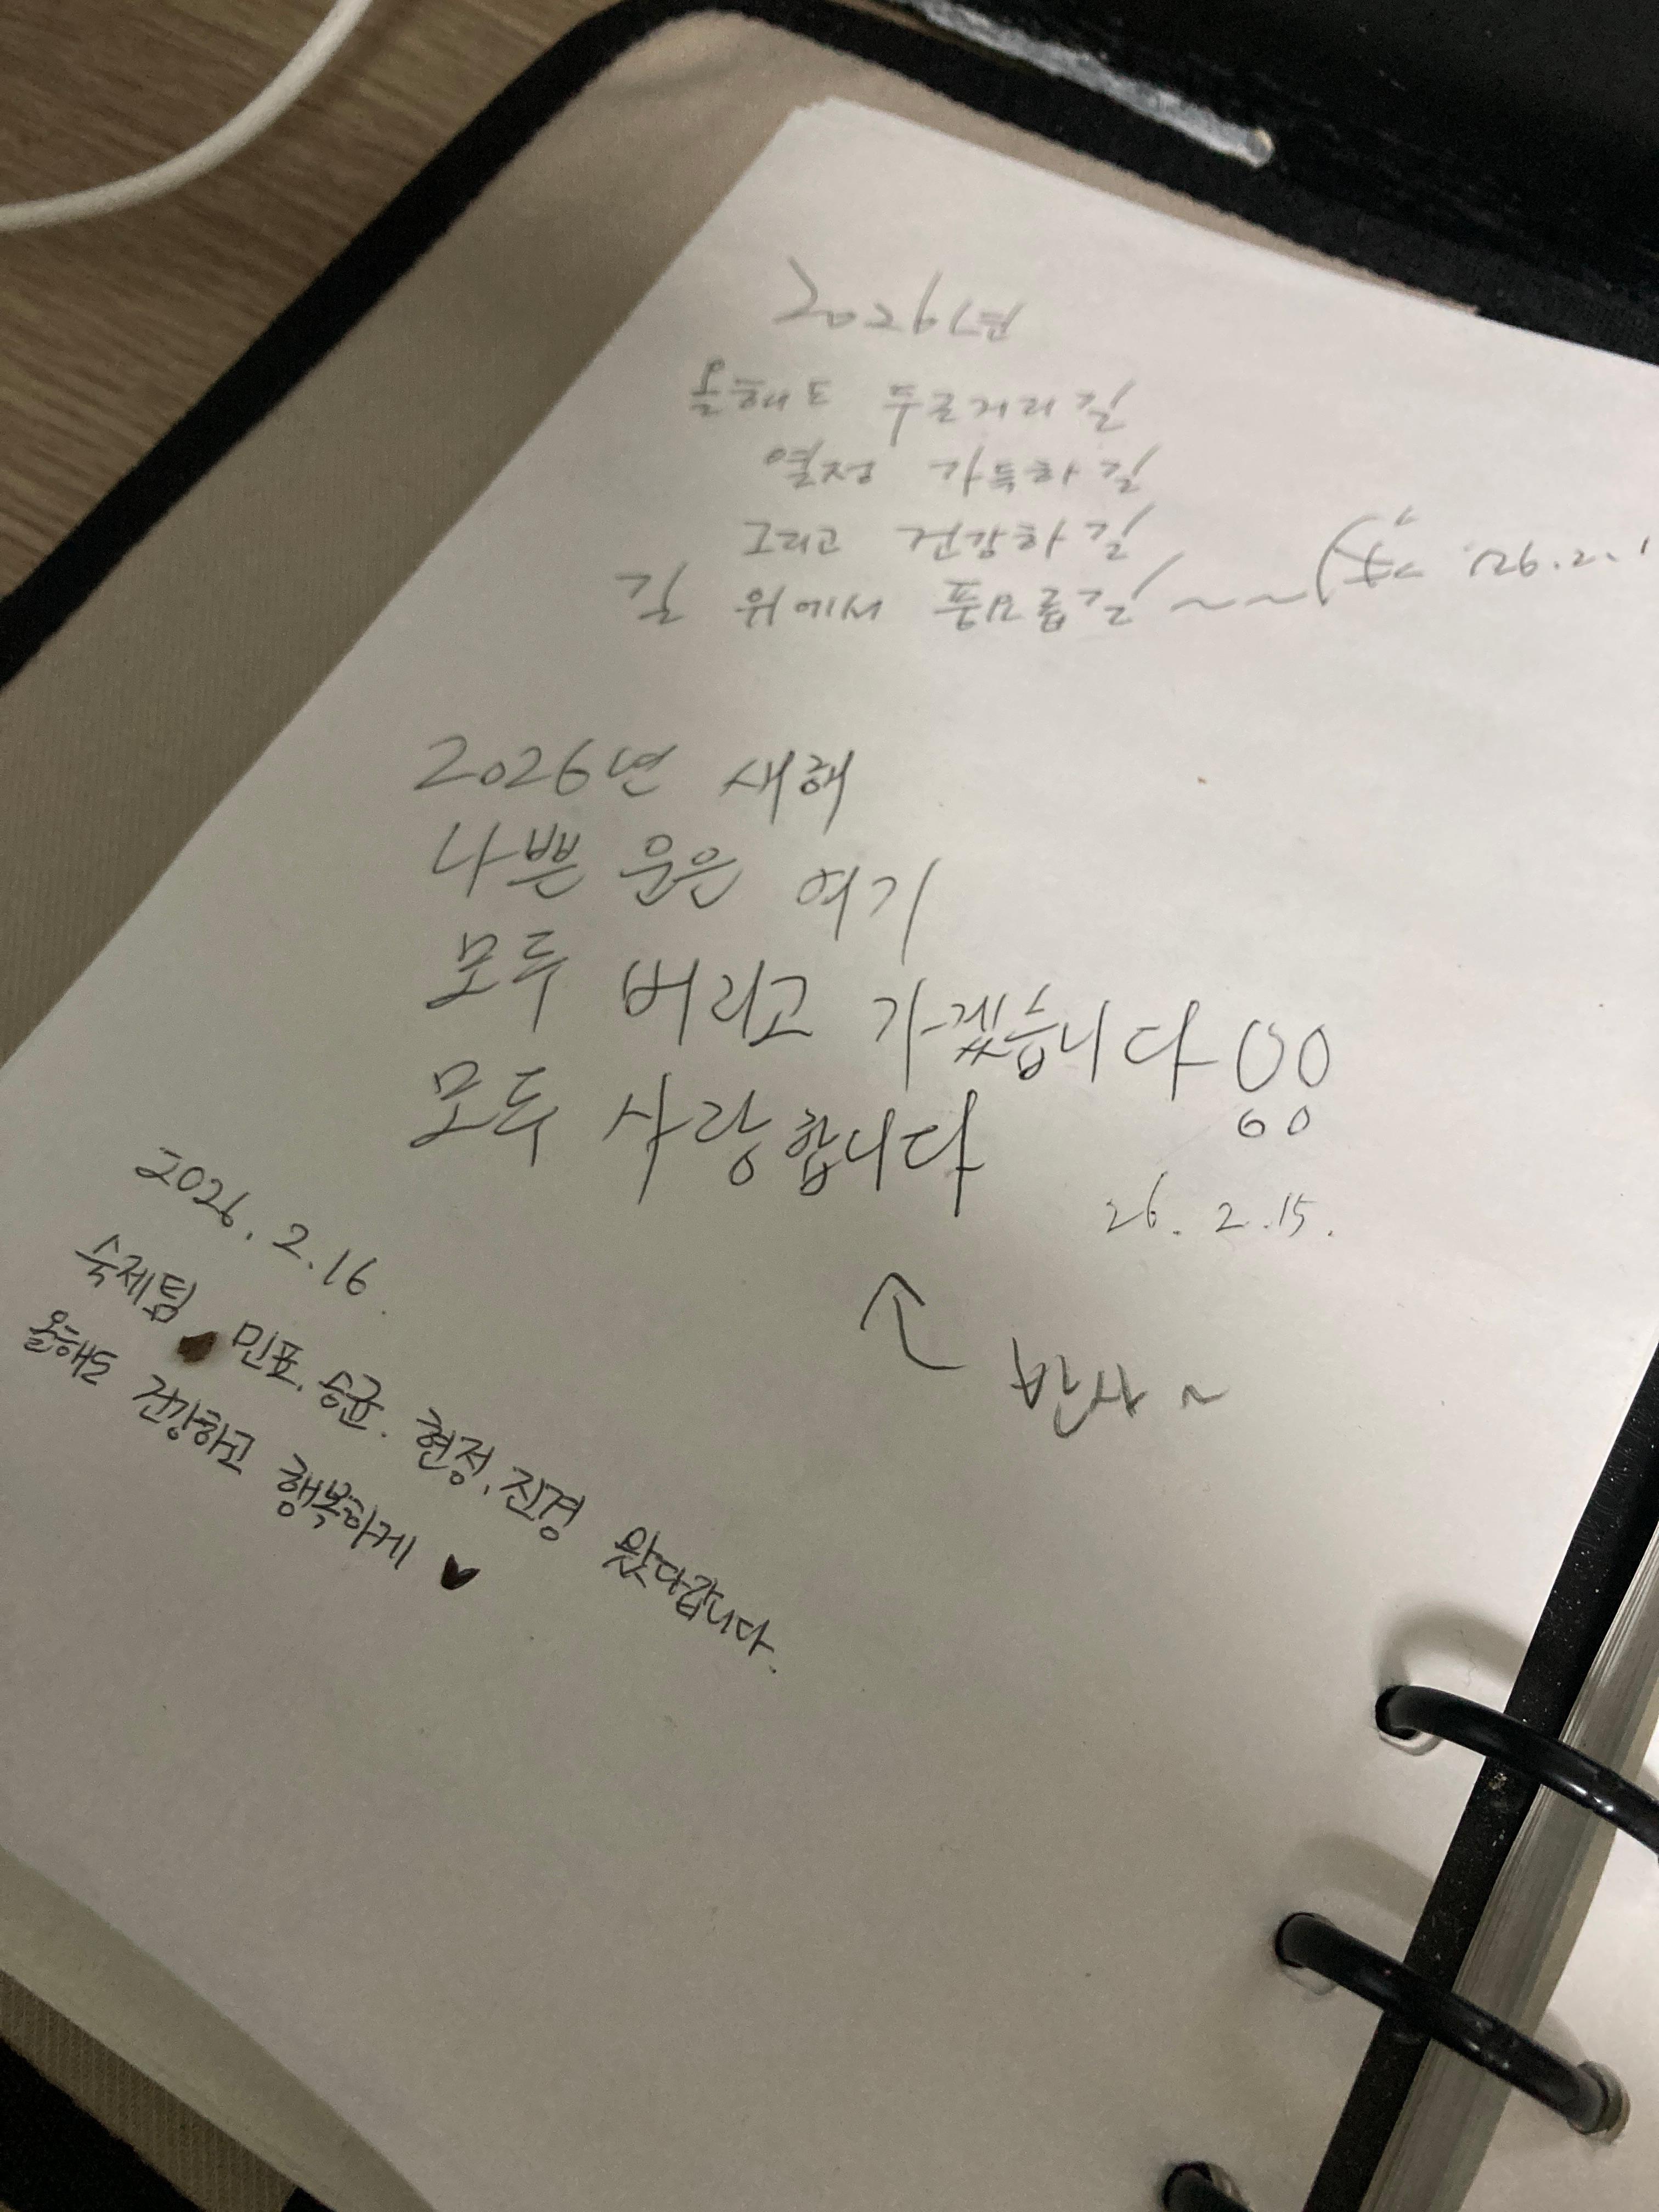 2026년
올해도 두근거리길
열정 가득하길
그리고 건강하길
길 위에서 풍요롭길~~ '26.2.1
2026년 새해
나쁜 운은 여기
모두 버리고 가겠습니다
모두 사랑합니다
26. 2. 15.
반사~
2026. 2. 16.
숙제팀 민표, 승균. 현정, 진경 왔다갑니다.
올해도 건강하고 행복하게 ♥